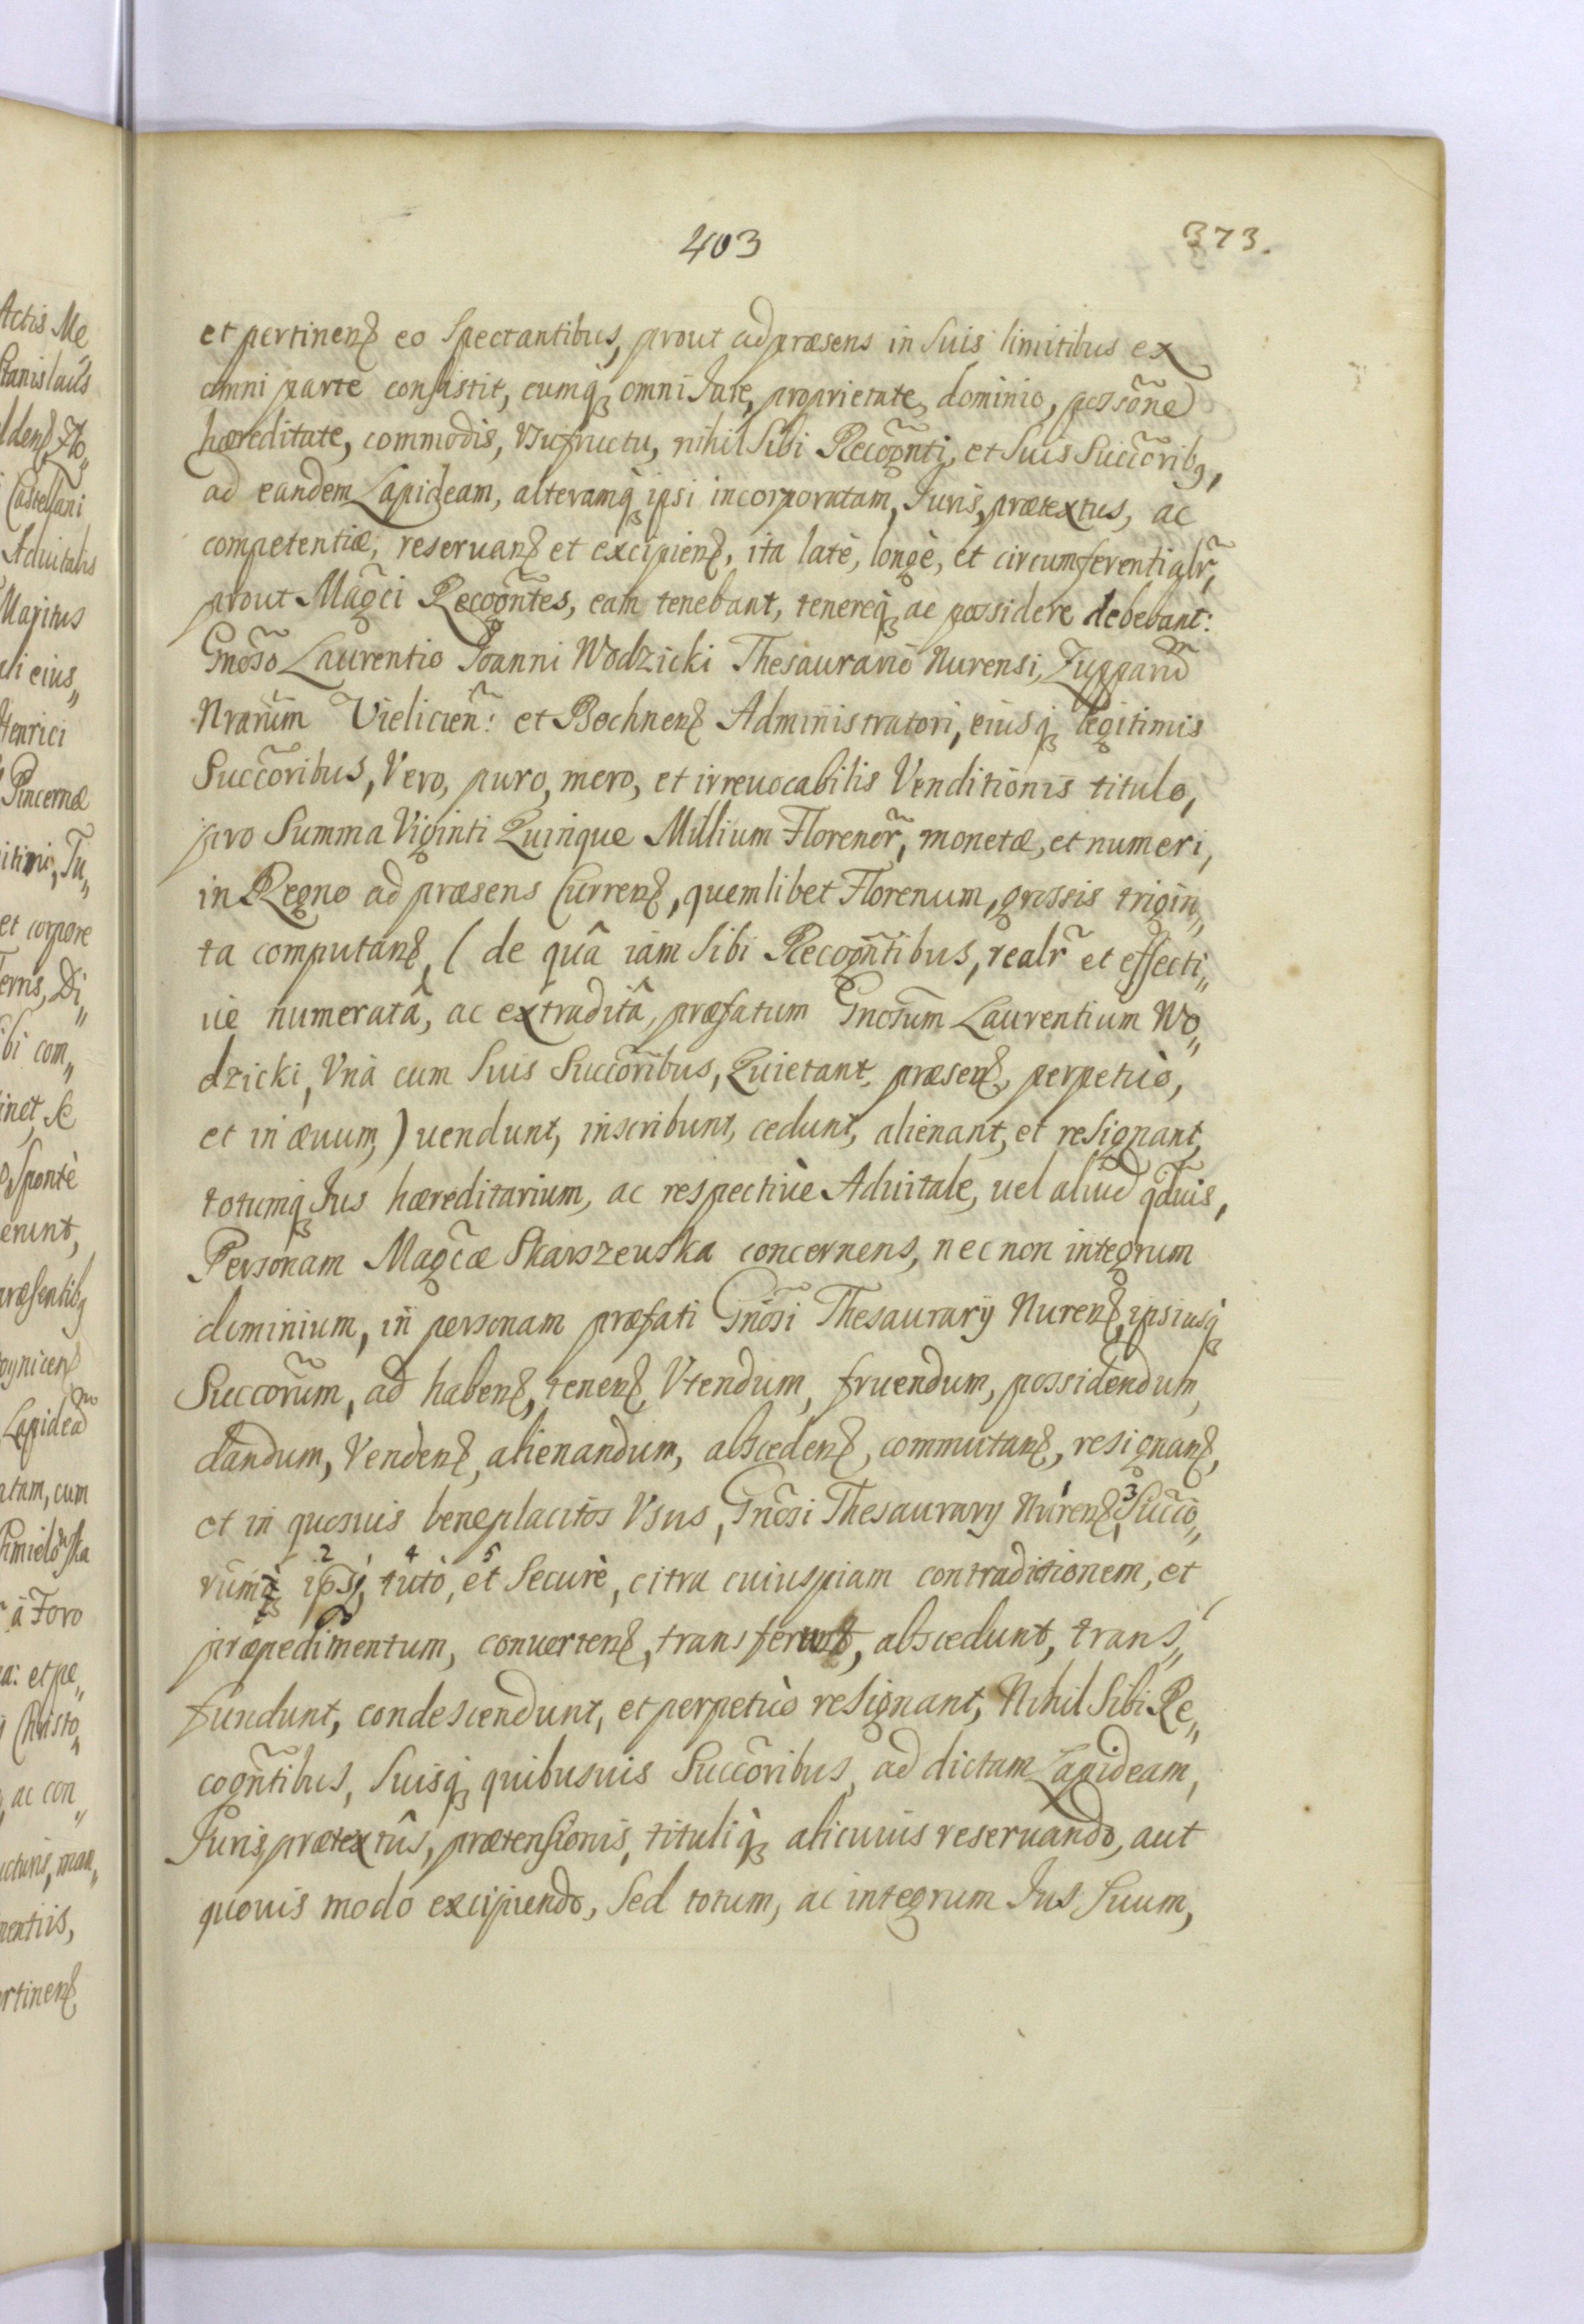 403
373.
et pertinenꝫ eo spectantibus, prout ad præsens in suis limitibus ex
omni parte consistit, cumqꝫ omni Jure, proprietate, dominio, possõne
hæreditate, commodis, Vsufructu, nihil sibi Recogñti, et suis Succõribꝰ,
ad eandem Lapideam, alteramqꝫ ipsi incorporatam, Juris, prætextus, ac
competentiæ, reseruanꝫ et excipienꝫ, ita latè, longè, et circumferentialr̃,
prout Magc̃i Recogñtes, eam tenebant, tenereqꝫ ac possidere debebant:
Gnõso Laurentio Joanni Wodzicki Thesaurario Nurensi, Zupparũ
Nrarũm Vielicieñ: et Bochnenꝫ Administratori, eiusqꝫ legitimis
Succõribus, Vero, puro, mero, et irreuocabilis Venditionis titulo,
pro Summa Viginti Quinque Millium Florenor̃, monetæ, et numeri,
in Regno ad præsens Currenꝫ, quemlibet Florenum, grossis trigin„
ta computanꝫ, (de quâ iam sibi Recogñtibus, realr̃ et effecti„
uè numeratâ, ac extraditâ, præfatum Gnosũm Laurentium Wo„
dzicki, Vnà cum suis Succõribus, Quietant, præsenꝫ, perpetuò,
et in æuum,) uendunt, inscribunt, cedunt, alienant, et resignant,
totumqꝫ Jus hæreditarium, ac respectiuè Aduitale, uel aliud qduis̃,
Personam Magc̃æ Skarszeuska concernens, nec non integrum
dominium, in personam præfati Gnõsi Thesaurarÿ Nurenꝫ, ipsiusqꝫ
Succorũm, ad habenꝫ, tenenꝫ, Vtendum, fruendum, possidendum,
dandum, Vendenꝫ, alienandum, abscedenꝫ, commutanꝫ, resignanꝫ,
et in quosuis beneplacitos Vsus, Gnõsi Thesaurarÿ Nurenꝫ, 1 3 Succo„
rũmqꝫ 2 ipsi, 4 tutò, 5 et Securè, citra cuiuspiam contradictionem, et
præpedimentum, conuertenꝫ, transferunt, abscedunt, trans„
fundunt, condescendunt, et perpetuò resignant, Nihil sibi Re„
cogñtibus, suisqꝫ quibusuis Succõribus, ad dictam Lapideam,
Juris, prætextûs, prætensionis, tituliqꝫ alicuius reseruando, aut
quouis modo excipiendo, sed totum, ac integrum Jus suum,
Actis Me
Stanislaus
Castellani
Aduitalis
Maritus
eius„
Henrici
Pincernæ
et corpore
Di„
bi com„
Spontè
erunt,
Lapideã
cum
à Foro
et pe„
Christo„
ac con„